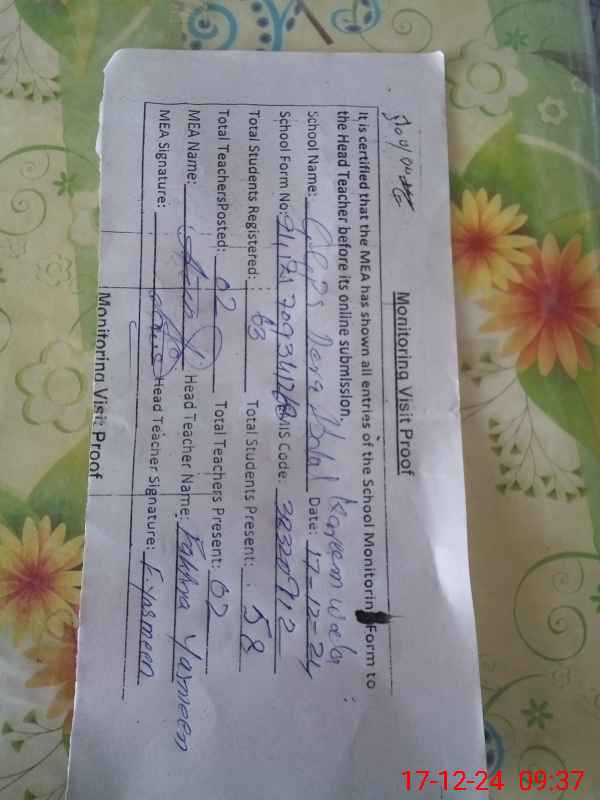 Monitoring Visit Proof
It is certified that the MEA has shown all entries of the School Monitorin Form to
the Head Teacher before its online submission.
School Name: GGPS Dera Abdal Kareem wala Date: 17-12-24
School Form No: EMIS Code: 38320712
Total Students Registered: 63 Total Students Present: 58
Total TeachersPosted: 02 Total Teachers Present: 02
MEA Name: Head Teacher Name: Fakhra Yasmeen
MEA Signature: Head Teacher Signature: F. Yasmeen
Monitoring Visit Proof
17-12-24 09:37